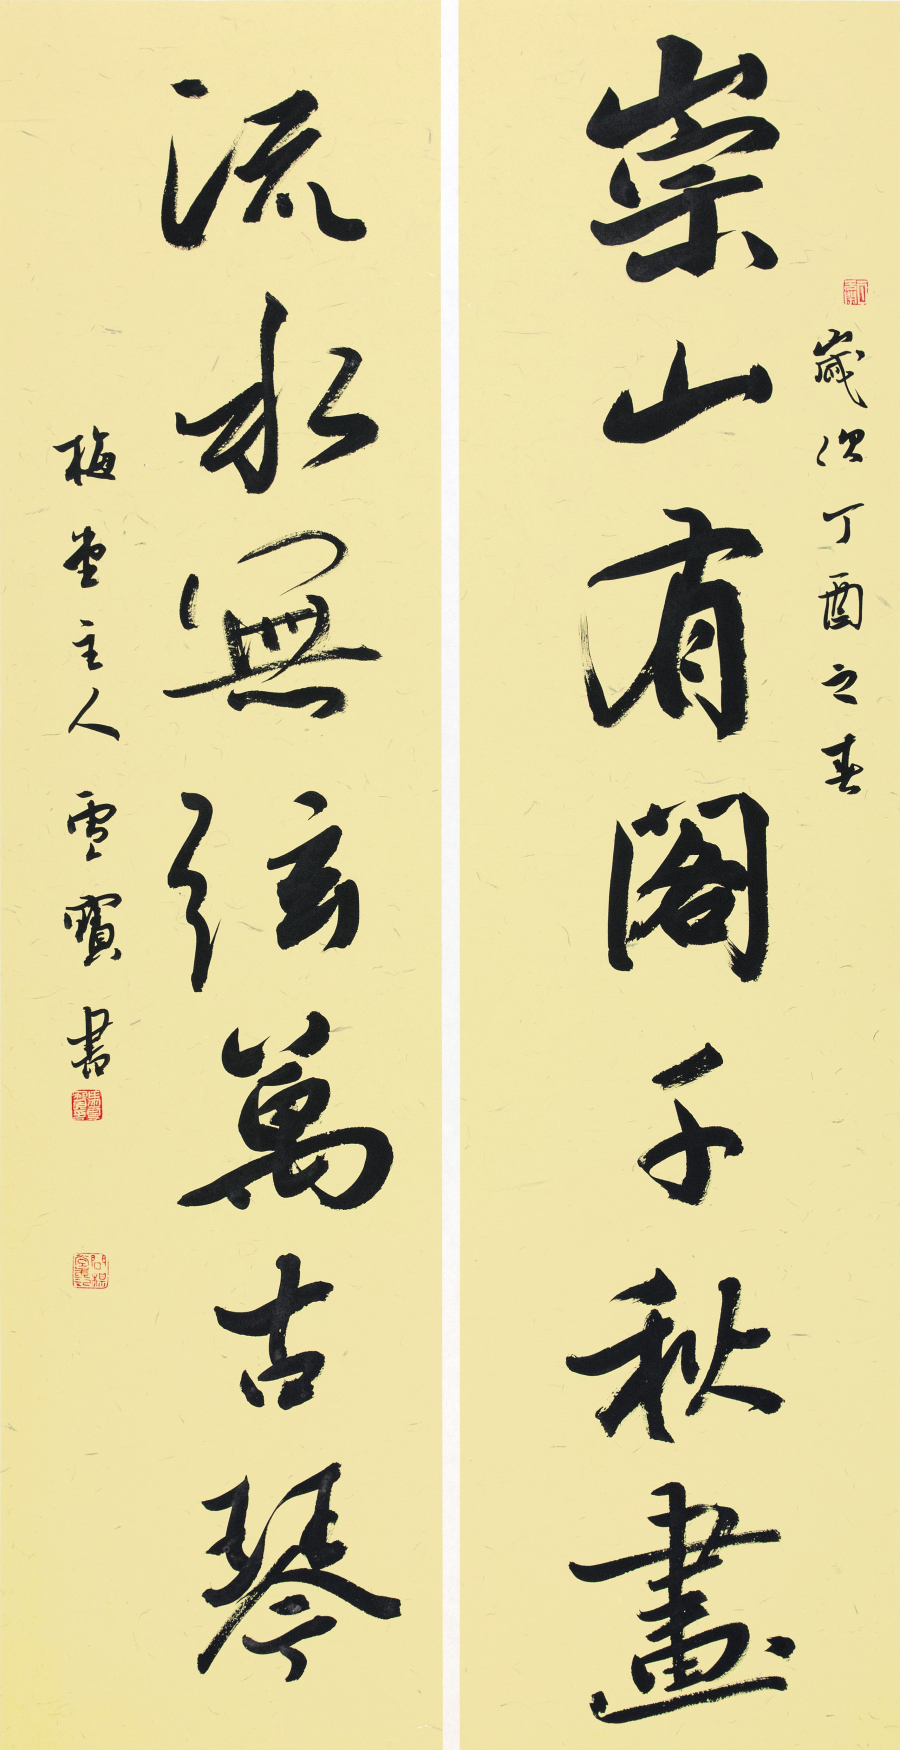 歲次丁酉之春
崇山有閣千秋畫
流水無弦萬古琴
梅堂主人雪寶書